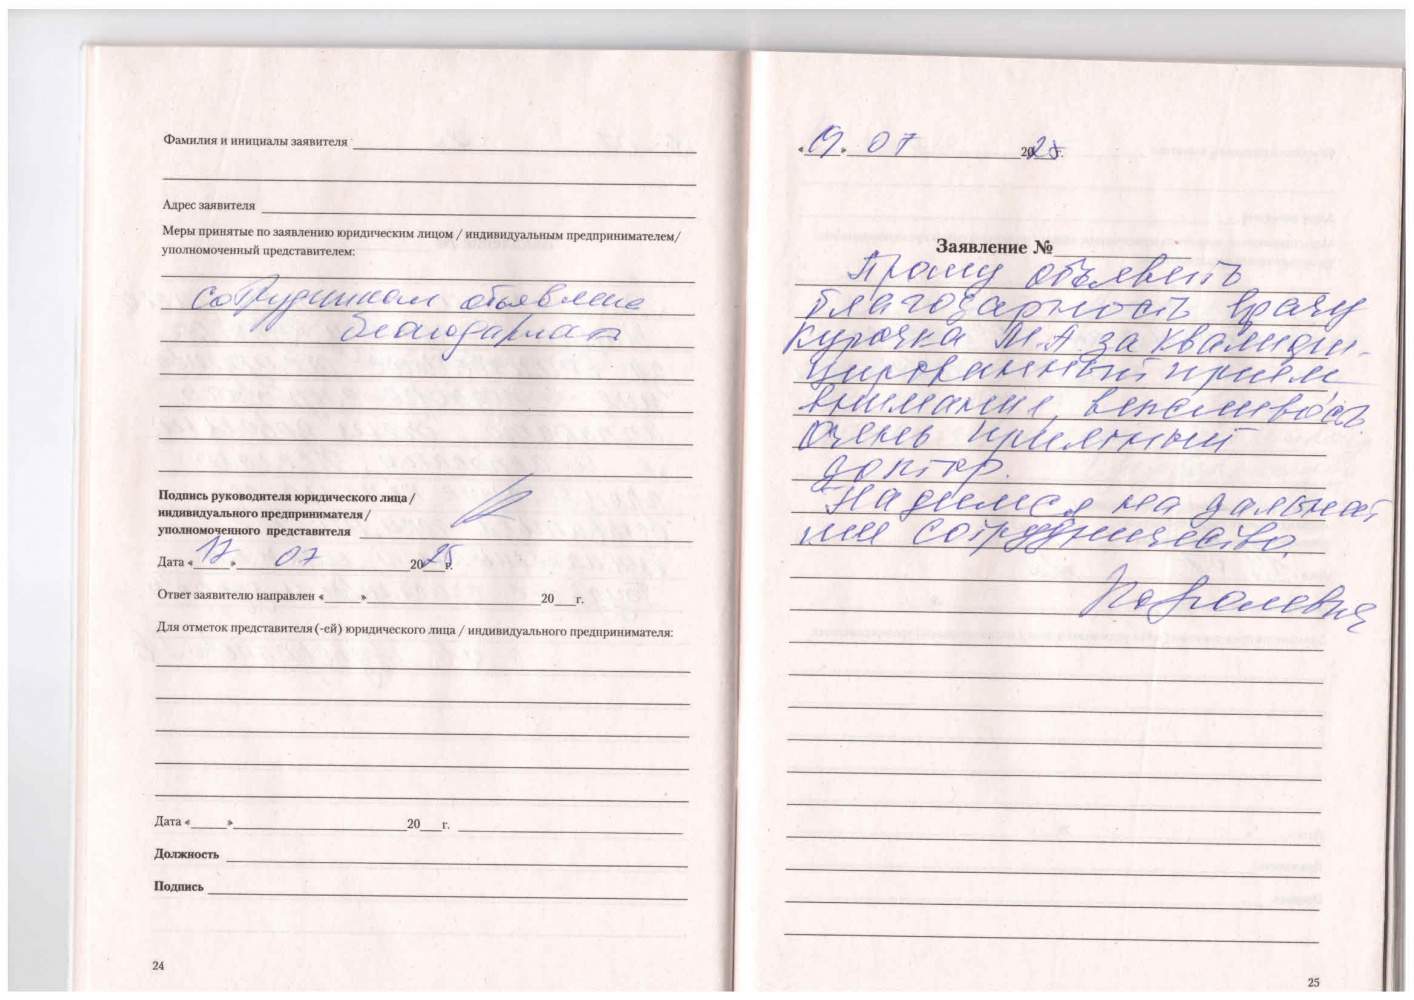 Фамилия и инициалы заявителя
Адрес заявителя
Меры принятые по заявлению юридическим лицом / индивидуальным предпринимателем/
уполномоченный представителем:
сотрудникам объявлена
благодарность
Подпись руководителя юридического лица /
индивидуального предпринимателя /
уполномоченного представителя
Дата «17» 07 2025г.
Ответ заявителю направлен «___»___20___г.
Для отметок представителя (-ей) юридического лица / индивидуального предпринимателя:
Дата «___»___20___г.
Должность
Подпись
24
«09» 07 2025г.
Заявление №
Прошу объявить
благодарность врачу
Курочка М.А за квалифи-
цированный прием
внимание, вежливость.
Очень приятный
доктор.
Надеимся на дальней
шие сотрудничество.
25